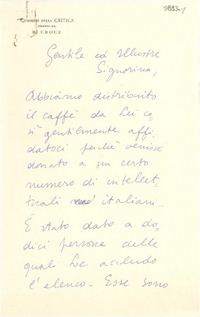 QUADERNI DELLA CRITICA
B. CROCE
Gentile ed illustre
Signorina,
Abbiamo distribuito
il caffè da Lei co-
sì gentilmente affi-
datoci perchè venisse
donato a un certo
numero di intellet-
tuali italiani.
È stato dato a do-
dici persone delle
quali Le accludo
l'elenco. Esse sono